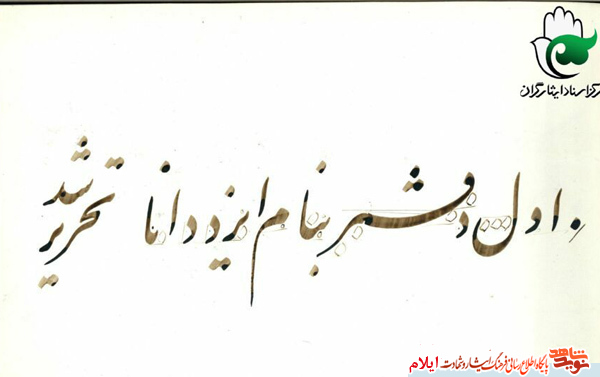 مرکز اسناد ایثارگران
اول دفتر بنام ایزد دانا تحریر شد
نوید شاهد پایگاه اطلاع رسانی فرهنگ ایثار و شهادت ایلام